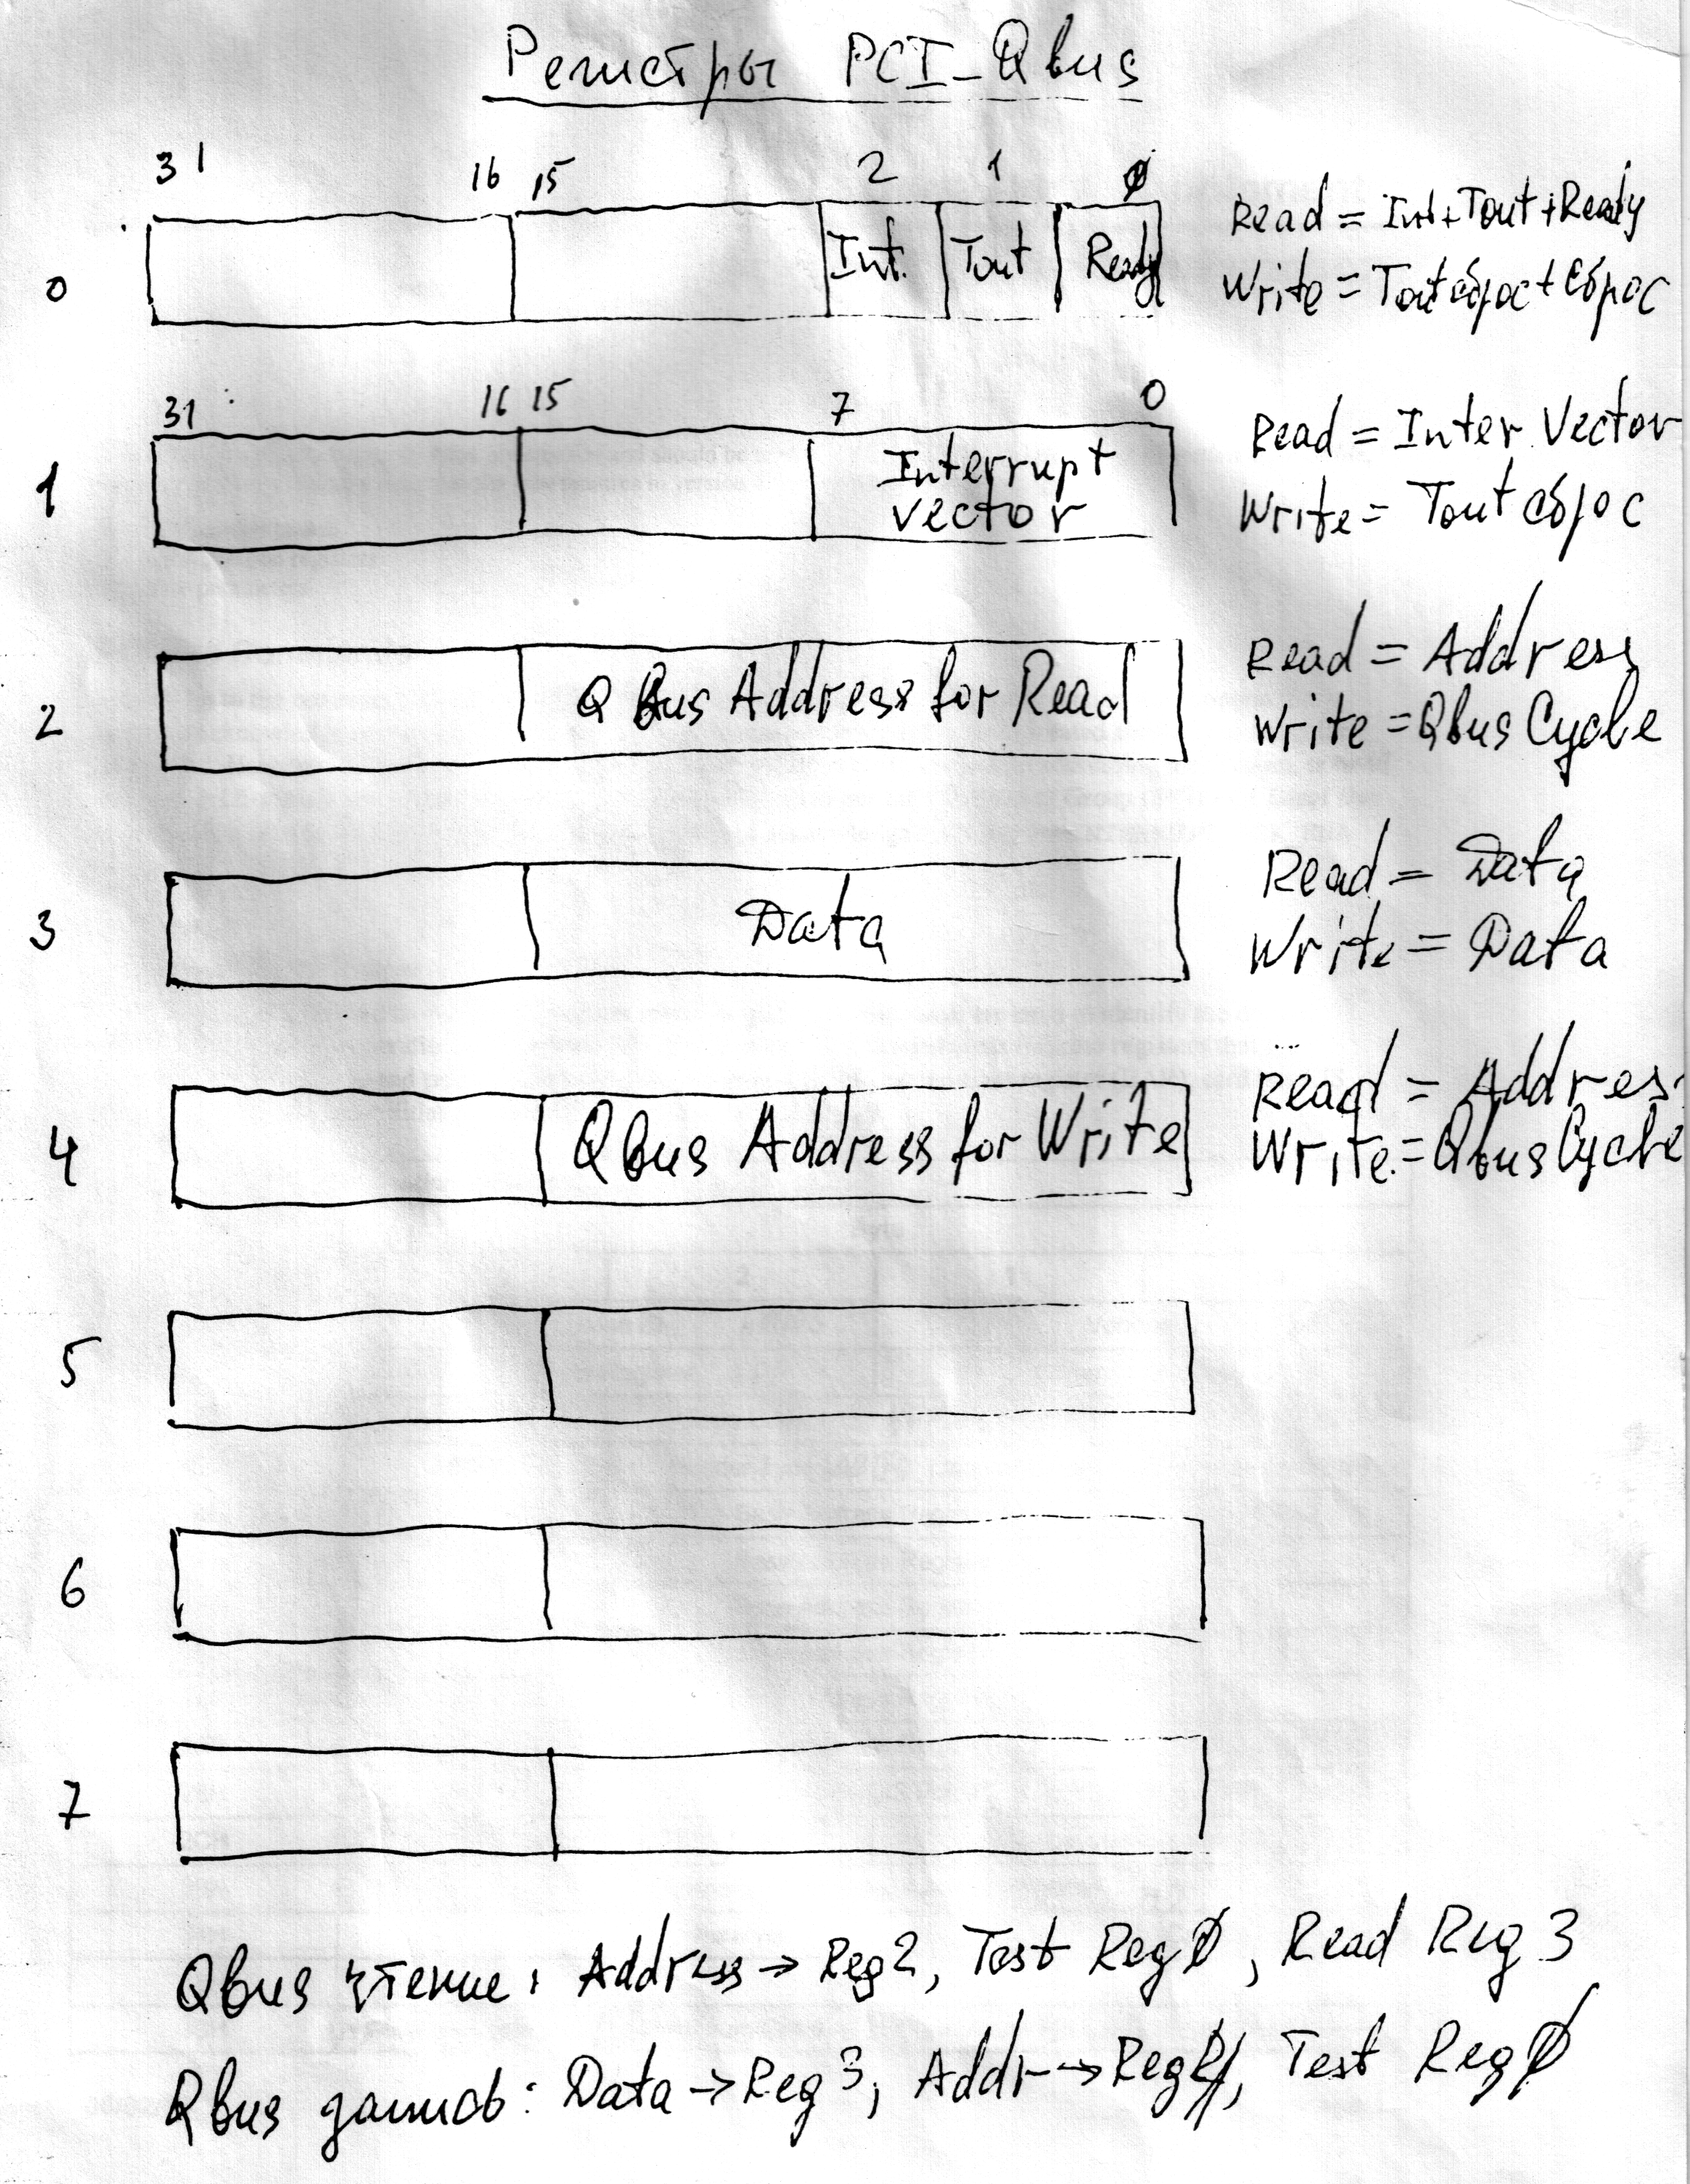 Регистры PCI-Qbus
31 16 15 2 1 0
0 Int. Tout Ready
Read = Int+Tout+Ready
Write = Tout сброс + сброс
31 16 15 7 0
1 Interrupt
vector
Read = Inter. Vector
Write = Tout сброс
2 Q Bus Address for Read
Read = Address
Write = Qbus Cycle
3 Data
Read = Data
Write = Data
4 Q bus Address for Write
Read = Address
Write = Qbus Cycle
5
6
7
Qbus чтение: Address → Reg 2, Test Reg 0, Read Reg 3
Qbus запись: Data → Reg 3, Addr → Reg 4, Test Reg 0